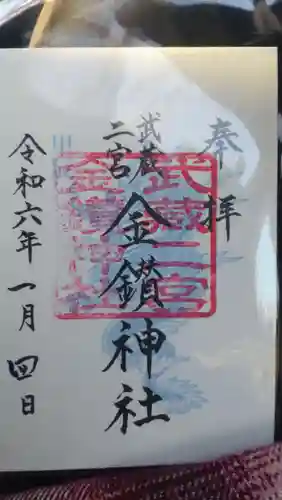 奉拝
武蔵
二宮
金鑚神社
武蔵二宮
金鑚神社
令和六年一月四日